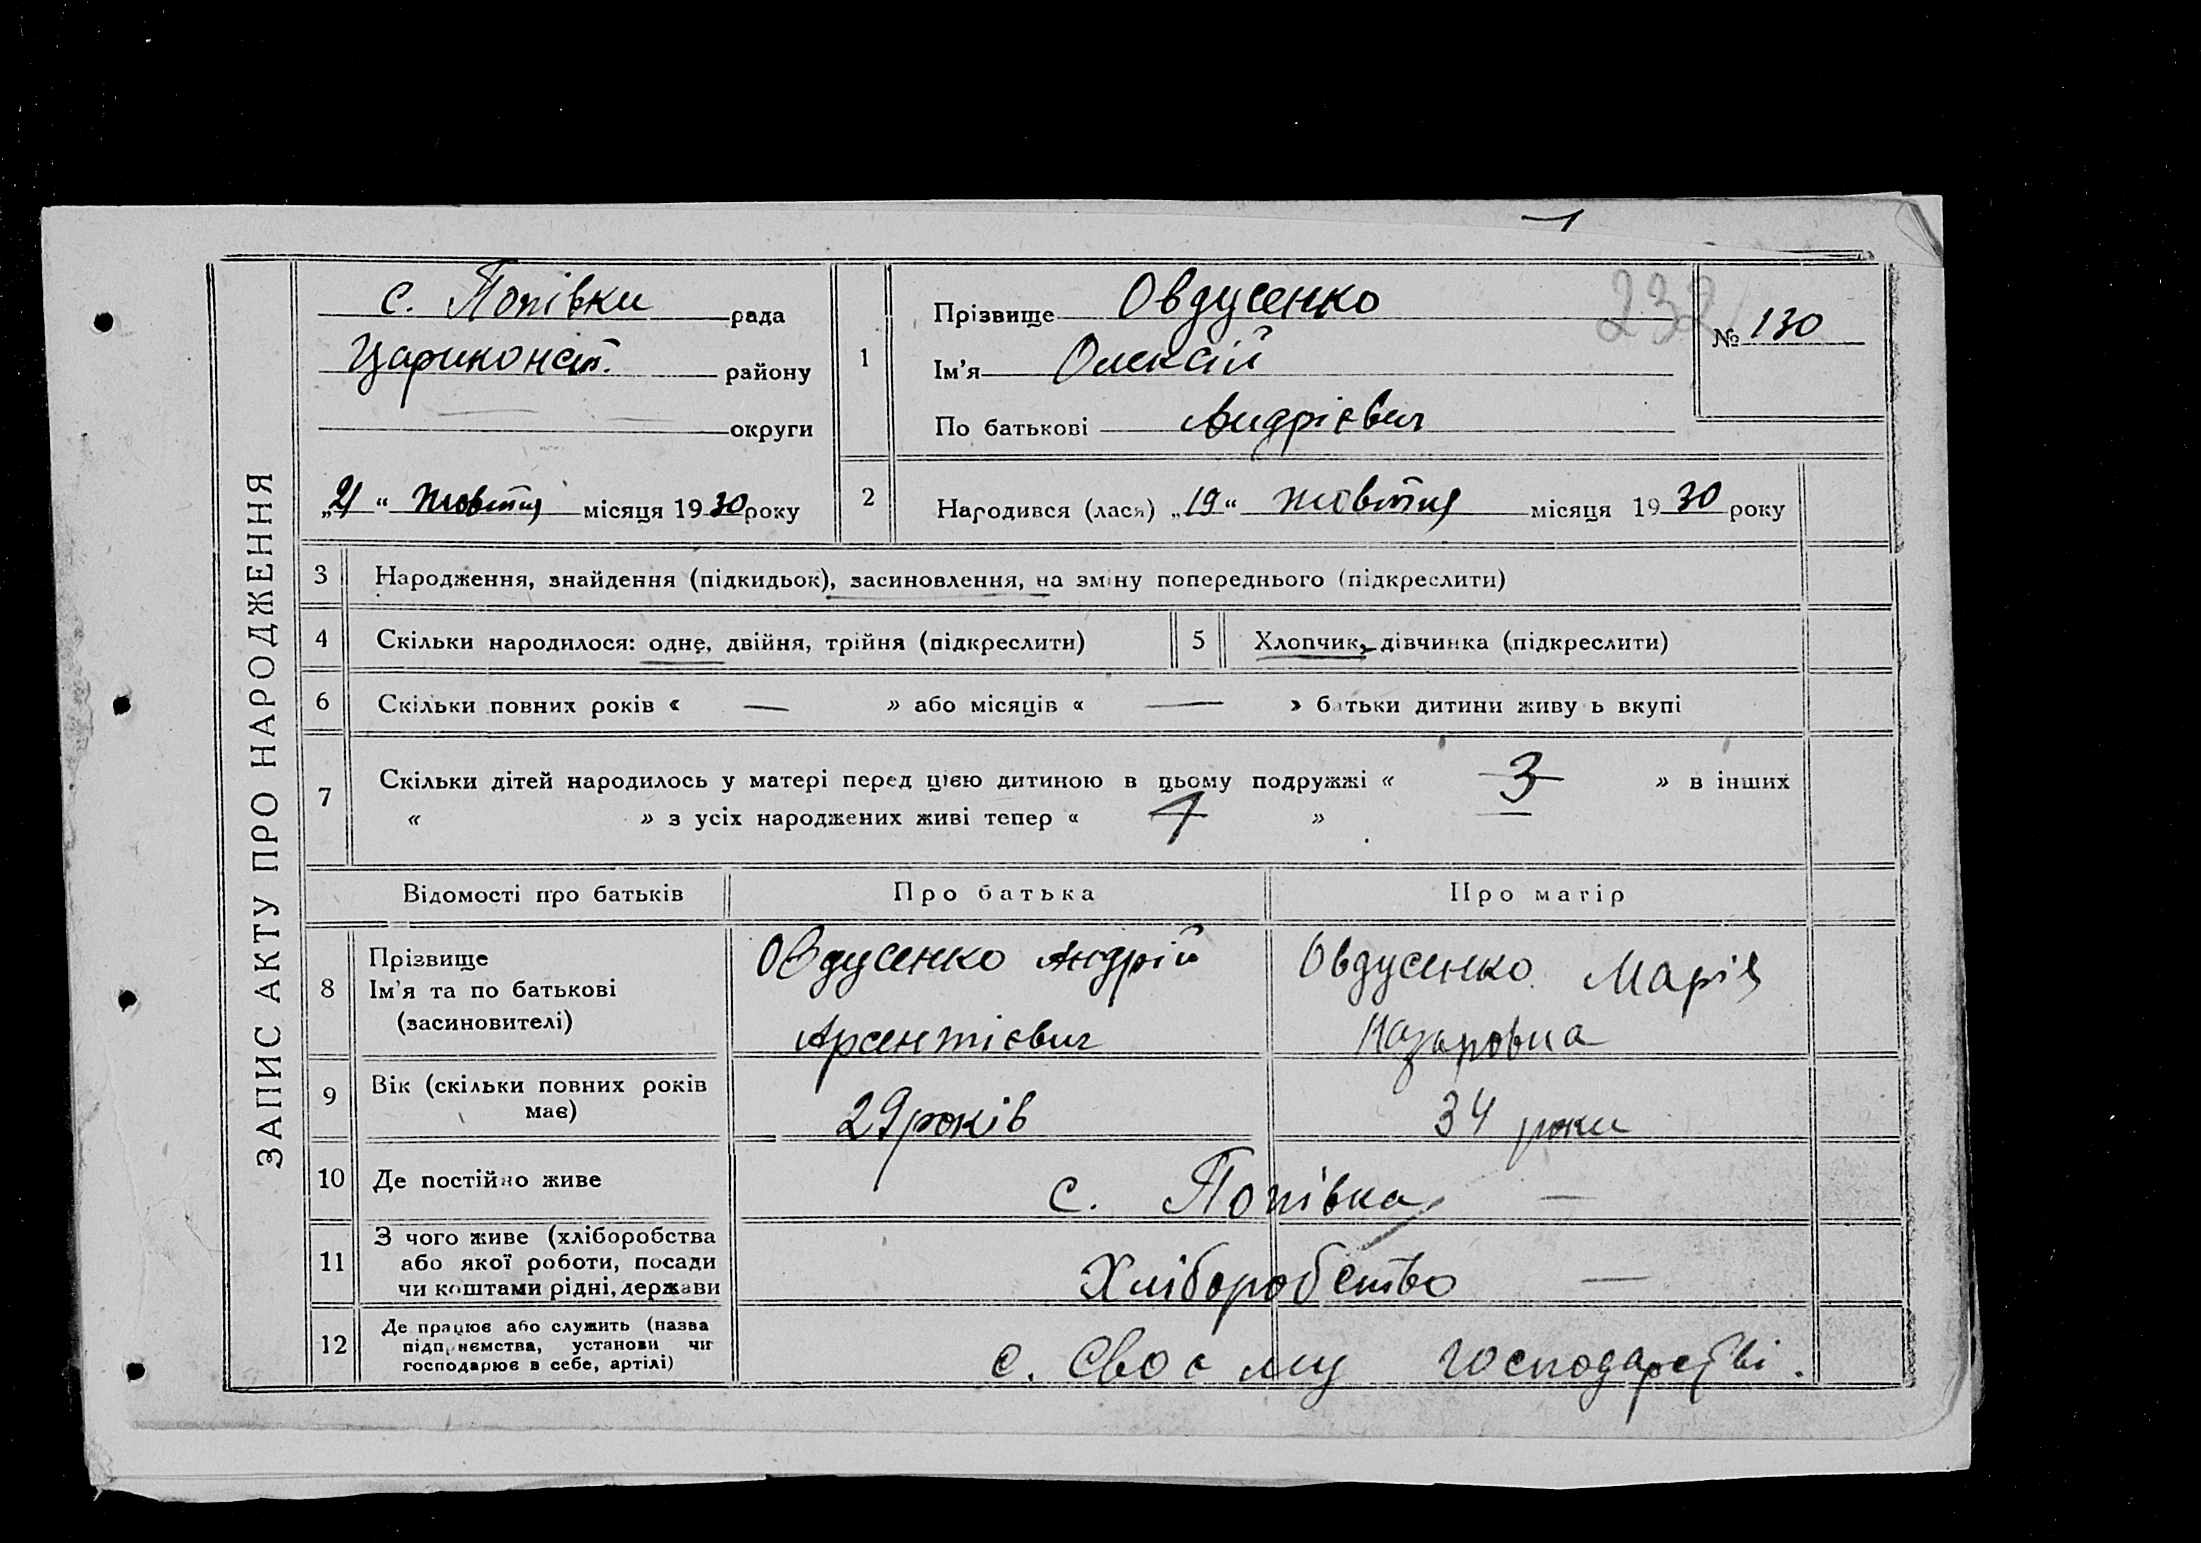 ЗАПИС АКТУ ПРО НАРОДЖЕННЯ
с. Попівки рада
Цариконст. району
округи
„21“ жовтня місяця 1930 року
1
Прізвище Овдусенко
Ім'я Олексій
По батькові Андрієвич
232
№ 130
2 Народився (лася) „19“ жовтня місяця 1930 року
3 Народження, знайдення (підкидьок), засиновлення, на зміну попереднього (підкреслити)
4 Скільки народилося: одне, двійня, трійня (підкреслити) 5 Хлопчик, дівчинка (підкреслити)
6 Скільки повних років « — » або місяців « — » батьки дитини живу ь вкупі
7 Скільки дітей народилось у матері перед цією дитиною в цьому подружжі « 3 » в інших
« » з усіх народжених живі тепер « 4 »
Відомості про батьків Про батька Про матір
8 Прізвище
Ім'я та по батькові
(засиновителі)
Овдусенко Андрій
Арсентієвич
Овдусенко Марія
Назаровна
9 Вік (скільки повних років
має)
29 років
34 роки
10 Де постійно живе с. Попівка —
11 З чого живе (хліборобства
або якої роботи, посади
чи коштами рідні, держави
Хліборобство —
12 Де працює або служить (назва
підприємства, установи чи
господарює в себе, артілі)
с. своєму господарстві.